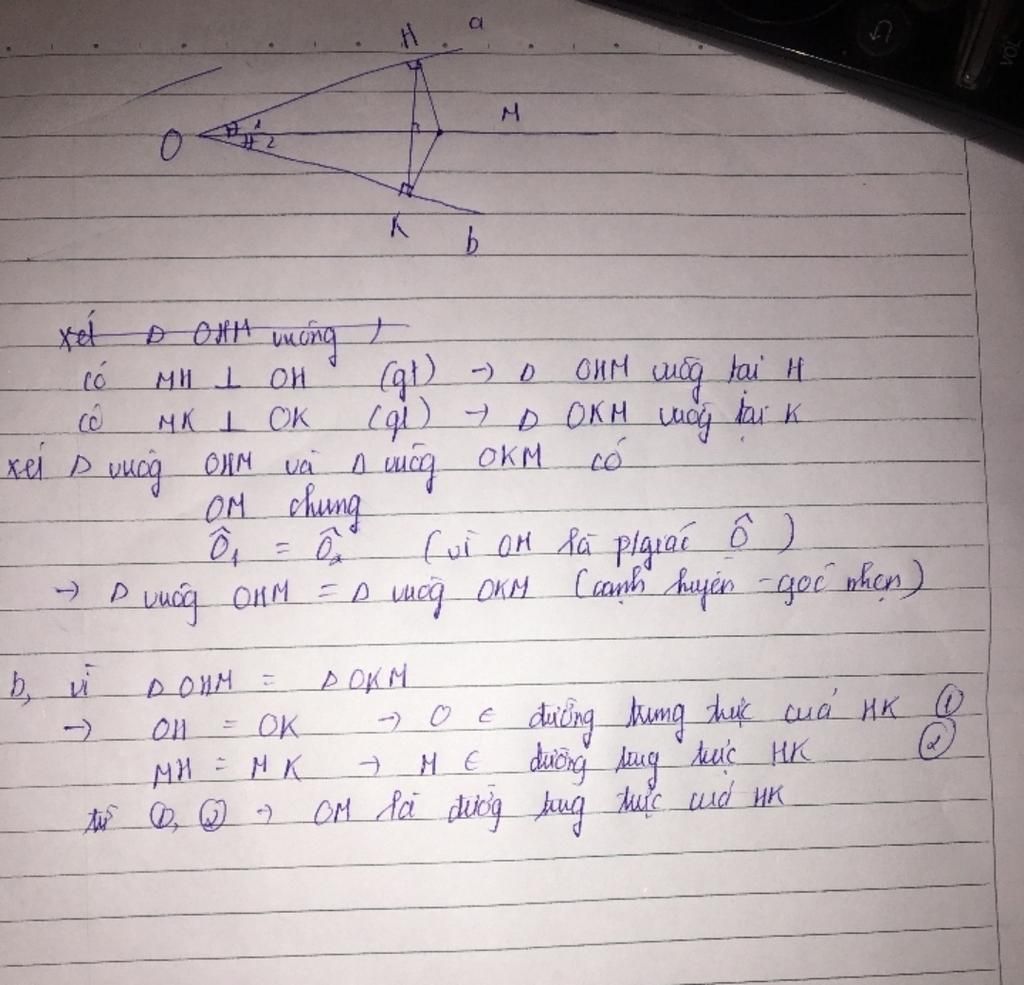 H a
O 1 2 M
K b
xét Δ OHM vuông
có MH ⊥ OH (gt) → Δ OHM vuôg tại H
có MK ⊥ OK (gt) → Δ OKM vuôg tại K
xét Δ vuôg OHM và Δ vuôg OKM có
OM chung
Ô1 = Ô2 (vì OM là p/giác Ô)
→ Δ vuôg OHM = Δ vuôg OKM (cạnh huyền - góc nhọn)
b, vì Δ OHM = Δ OKM
→ OH = OK → O ∈ đường trung trực của HK ①
MH = MK → M ∈ đường trug trực HK ②
từ ①, ② → OM là đườg trug trực của HK